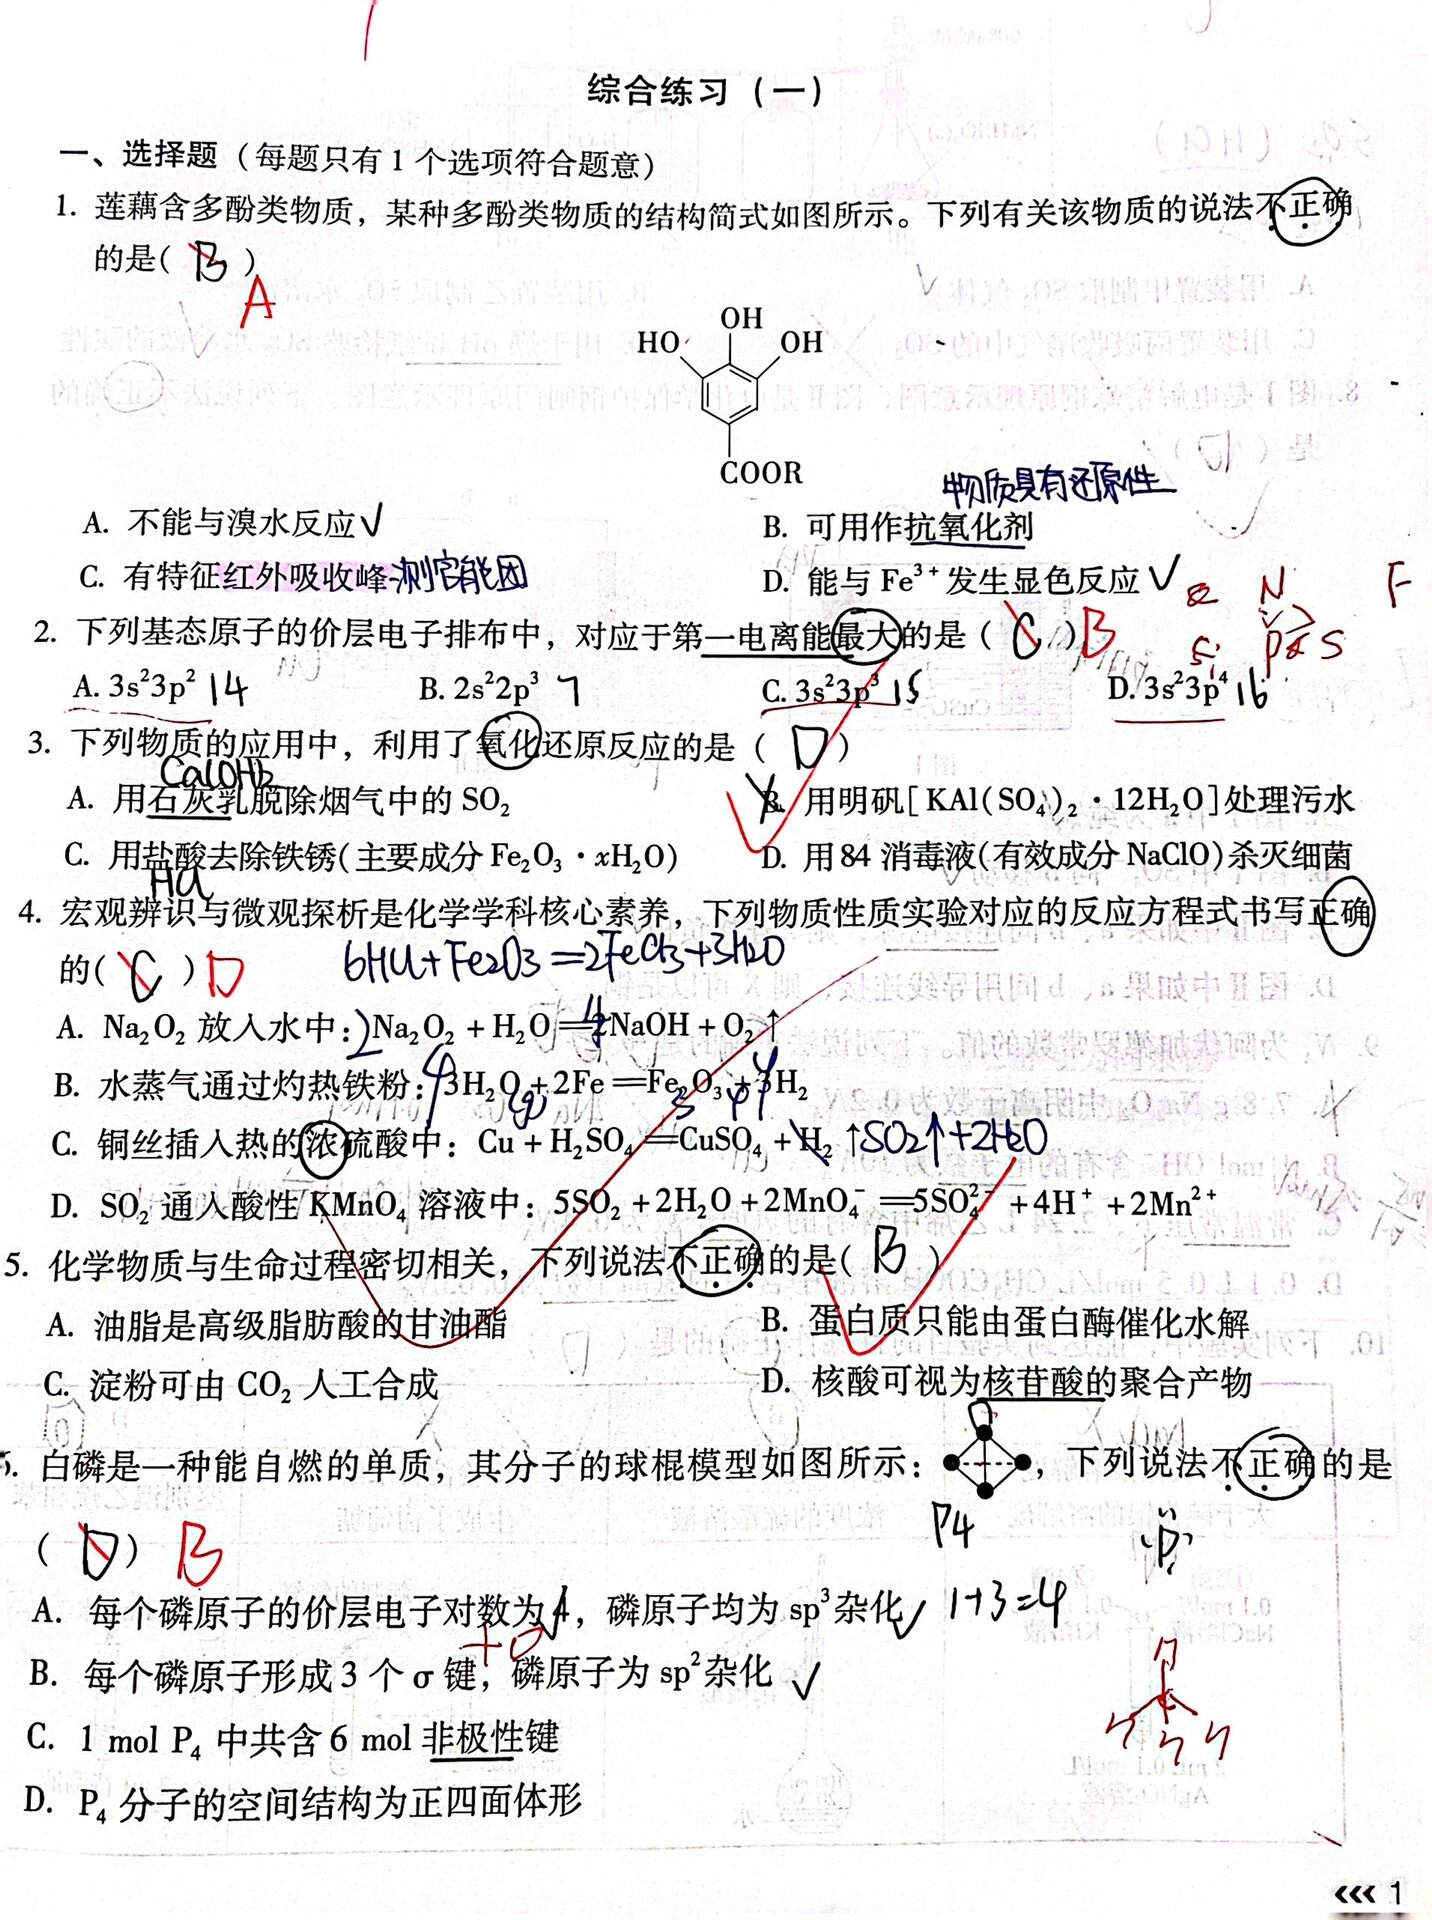 综合练习（一）
一、选择题（每题只有1个选项符合题意）
1. 莲藕含多酚类物质，某种多酚类物质的结构简式如图所示。下列有关该物质的说法不正确
的是( B )
A
OH
HO OH
COOR
物质具有还原性
A. 不能与溴水反应√ B. 可用作抗氧化剂
C. 有特征红外吸收峰-测官能团 D. 能与 Fe³⁺ 发生显色反应 √
N F
Si P S
2. 下列基态原子的价层电子排布中，对应于第一电离能最大的是 ( C ) B
A. 3s²3p² 14 B. 2s²2p³ 7 C. 3s²3p³ 15 D. 3s²3p⁴ 16
3. 下列物质的应用中，利用了氧化还原反应的是 ( D )
Ca(OH)₂
A. 用石灰乳脱除烟气中的 SO₂ B. 用明矾[KAl(SO₄)₂·12H₂O]处理污水
C. 用盐酸去除铁锈(主要成分 Fe₂O₃·xH₂O) D. 用 84 消毒液(有效成分 NaClO)杀灭细菌
HCl
4. 宏观辨识与微观探析是化学学科核心素养，下列物质性质实验对应的反应方程式书写正确
的( C ) D 6HCl+Fe₂O₃=2FeCl₃+3H₂O
A. Na₂O₂ 放入水中：2Na₂O₂ + H₂O═4 2NaOH + O₂↑
B. 水蒸气通过灼热铁粉：4 3H₂O(g) + 2Fe═Fe₂O₃ 3 4 + 3H₂ 4
C. 铜丝插入热的浓硫酸中：Cu + H₂SO₄═CuSO₄ + H₂↑ SO₂↑+2H₂O
D. SO₂ 通入酸性 KMnO₄ 溶液中：5SO₂ + 2H₂O + 2MnO₄⁻═5SO₄²⁻ + 4H⁺ + 2Mn²⁺
5. 化学物质与生命过程密切相关，下列说法不正确的是( B )
A. 油脂是高级脂肪酸的甘油酯 B. 蛋白质只能由蛋白酶催化水解
C. 淀粉可由 CO₂ 人工合成 D. 核酸可视为核苷酸的聚合产物
6. 白磷是一种能自燃的单质，其分子的球棍模型如图所示：，下列说法不正确的是
P4 P
( D ) B
A. 每个磷原子的价层电子对数为4，磷原子均为 sp³杂化√ 1+3=4
+0
B. 每个磷原子形成 3 个 σ 键，磷原子为 sp²杂化 √
C. 1 mol P₄ 中共含 6 mol 非极性键
D. P₄ 分子的空间结构为正四面体形
‹‹‹ 1